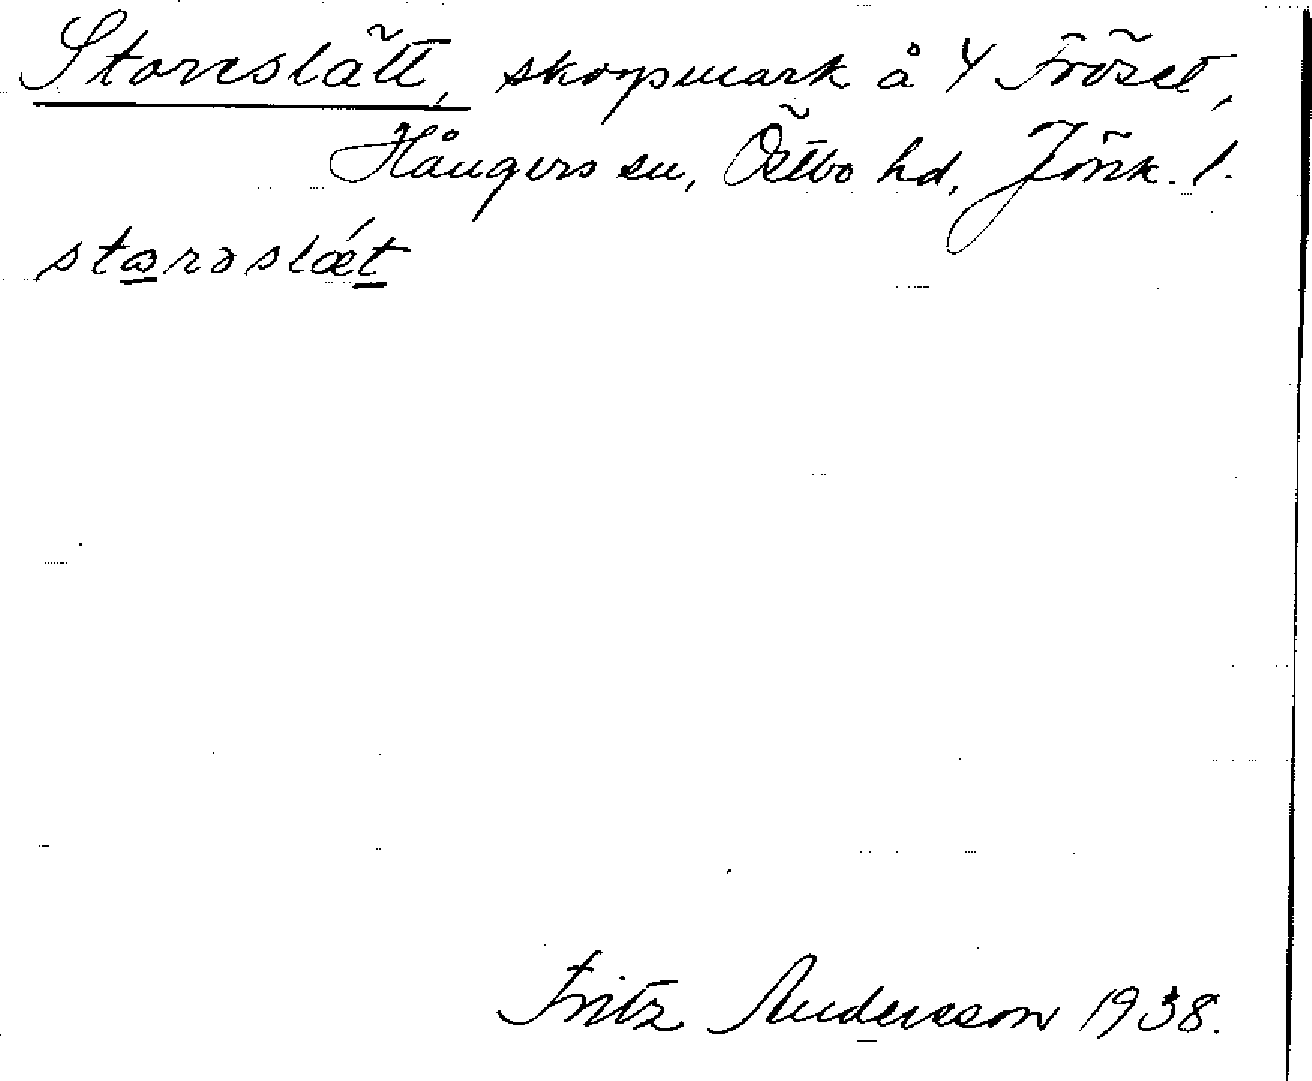 Storeslätt, skogsmark å Y Fröset,
Hångers sn, Östbo hd, Jönk. l.
storəslǽt
Fritz Andersson 1938.